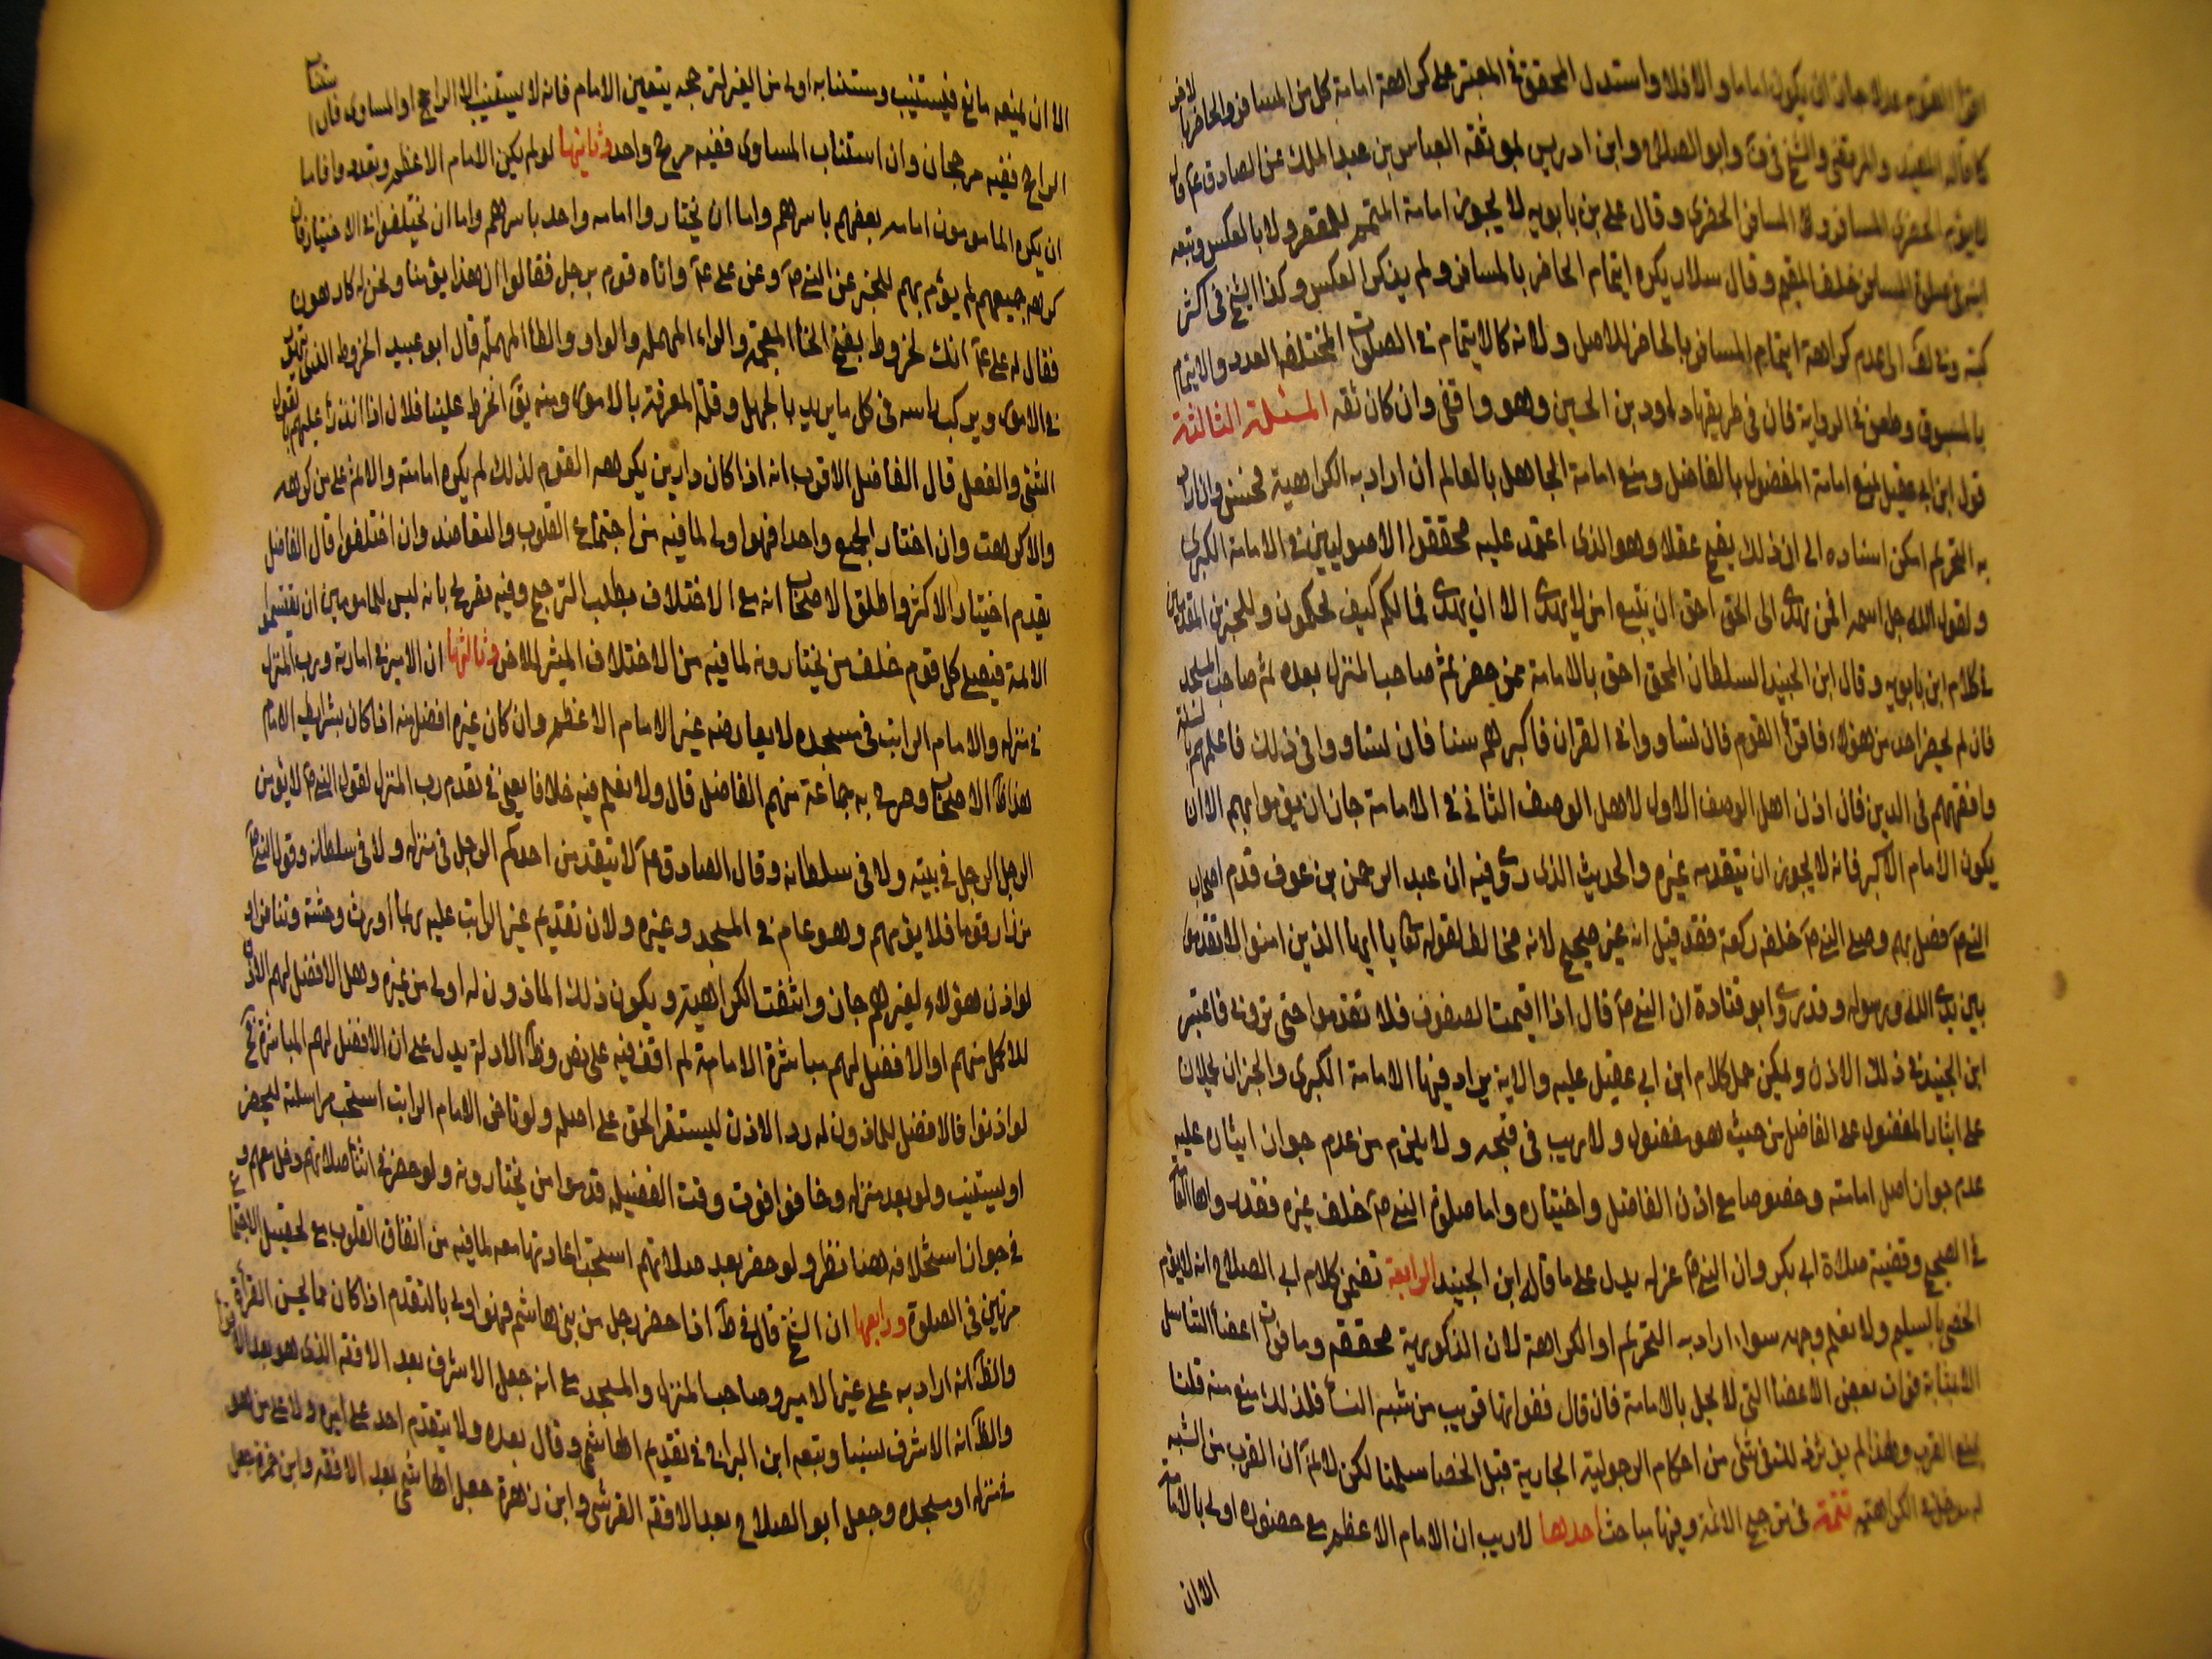 اقرأ القوم عدلا جاز ان يكون اماما والا فلا واستدل المحقق في المعتبر على كراهة امامة كل من المسافر والحاضر بالاخر
كما قاله المفيد والمرتضى والشيخ في ف وابو الصلاح وابن ادريس بموثقة العباس بن عبد الملك عن الصادق ع قال
لا يؤم الحضري المسافر ولا المسافر الحضري وقال علي بن بابويه لا يجوز امامة المتمم للمقصر ولا بالعكس وتبعه
ابنه في صلوة المسافر خلف المقيم وقال سلار يكره ايتمام الحاضر بالمسافر ولم يذكر العكس وكذا الشيخ في اكثر
كتبه وفي لف الى عدم كراهة ايتمام المسافر بالحاضر للاصل ولانه كالايتمام في الصلوات المختلفة العدد والايتمام
بالمسبوق وطعن في الرواية فان في طريقها داود بن الحصين وهو واقفي وان كان ثقة المسئلة الثالثة
قول ابن ابي عقيل بمنع امامة المفضول بالفاضل ومنع امامة الجاهل بالعالم ان اراد به الكراهية فحسن وان اراد
به التحريم امكن اسناده الى ان ذلك يقبح عقلا وهو الذى اعتمد عليه محققوا الاصوليين في الامامة الكبرى
ولقول الله جل اسمه افمن يهدى الى الحق احق ان يتبع امن لا يهدى الا ان يهدى فمالكم كيف تحكمون وللخبرين المتقدمين
في كلام ابن بابويه وقال ابن الجنيد السلطان المحق احق بالامامة ممن حضر ثم صاحب المنزل بعده ثم صاحب المسجد
فان لم يحضر احد من هؤلاء فاقرأ القوم فان تساووا في القران فاكبرهم سنا فان تساووا في ذلك فاعلمهم بالسنة
وافقههم في الدين فان اذن اهل الوصف الاول لاهل الوصف الثاني في الامامة جاز ان يؤموا بهم الا ان
يكون الامام الاكبر فانه لا يجوز ان يتقدمه غيره والحديث الذى روى فيه ان عبد الرحمن بن عوف قدم اصحاب
النبي ص فصلى بهم وصلى النبي ص خلفه ركعة فقد قيل انه غير صحيح لانه مخالف لقوله تعا يا ايها الذين امنوا لا تقدموا
بين يدى الله ورسوله وقد روى ابو قتادة ان النبي ص قال اذا اقيمت الصفوف فلا تقدموا حتى تروني فاعتبر
ابن الجنيد في ذلك الاذن ويمكن حمل كلام ابن ابي عقيل عليه والاية يراد فيها الامامة الكبرى والخبران يحملان
على ايثار المفضول على الفاضل من حيث هو مفضول ولا ريب في قبحه ولا يلزم من عدم جواز ايثاره عليه
عدم جواز اصل امامته وخصوصا مع اذن الفاضل واختياره واما صلوة النبي ص خلف غيره فقد رواها العامة
في الصحيح وقضية صلاة ابي بكر وان النبي ص عزله يدل على ما قاله ابن الجنيد الرابعة تضمن كلام ابي الصلاح انه لا يؤم
الخصى بالسليم ولا نعلم وجهه سواء اراد به التحريم او الكراهة لان الذكورية محققة وما فوات اعضاء التناسل
الا بمثابة فوات بعض الاعضاء التى لا يخل بالامامة فان قال ففواتها قريب من شبه النسأ فلذلك منع منه قلنا
نمنع القرب ولهذا لم يؤثر في شئ من احكام الرجولية الجارية قبل الخصا سلمنا لكن لا نم ان القرب من الشبه
له مدخل في الكراهة تتمة في ترجيح الائمة وفيها مباحث احدها لا ريب ان الامام الاعظم مع حضوره اولى بالامامة
الا ان
الا ان يمنعه مانع فيستنيب ومستنابه اولى من الغير لترجحه بتعين الامام فانه لا يستنيب الا الراجح او المساوى فان استناب
الراجح ففيه مرجحان وان استناب المساوى ففيه مرجح واحد وثانيها لو لم يكن الامام الاعظم وتعددوا فاما
ان يكره المامومون امامة بعضهم باسرهم واما ان يختاروا امامة واحد باسرهم واما ان يختلفوا في الاختيار فان
كرهه جميعهم لم يؤم بهم للخبر عن النبي ص وعن علي ع واتاه قوم برجل فقالوا ان هذا يؤمنا ونحن له كارهون
فقال له علي ع انك لخروط بفتح الخأ المعجمة والراء المهملة والواو والطأ المهملة قال ابو عبيد الخروط الذى يتهور
في الامور ويركب راسه في كل ما يريد بالجهل وقلة المعرفة بالامور ومنه يق انخرط علينا فلان اذا اندرأ عليهم بالقول
السّئ والفعل قال الفاضل الاقرب انه اذا كان ذا دين يكرهه القوم لذلك لم يكره امامته والاثم على من كرهه
والا كرهت وان اختار الجميع واحدا فهو اولى لما فيه من اجتماع القلوب والتعاضد وان اختلفوا قال الفاضل
يقدم اختيار الاكثر واطلق الاصحاب انه مع الاختلاف يطلب الترجيح وفيه تصريح بانه ليس للمامومين ان يقتسموا
الائمة فيصلى كل قوم خلف من يختارونه لما فيه من الاختلاف المثير للاحن وثالثها ان الامير في امارته ورب المنزل
في منزله والامام الراتب في مسجده لا يعارضه غير الامام الاعظم وان كان غيره افضل منه اذا كان بشرايط الامام
هذا ظ الاصحاب وصرح به جماعة منهم الفاضل قال ولا نعلم فيه خلافا يعني في تقدم رب المنزل لقول النبي ص لا يؤمن
الرجل الرجل في بيته ولا في سلطانه وقال الصادق ع لا يتقدمن احدكم الرجل في منزله ولا في سلطانه وقول النبي ص
من زار قوما فلا يؤمهم وهو عام في المسجد وغيره ولان تقديم غير الراتب عليه ربما اورث وحشة وتنافرا و
لو اذن هؤلاء لغيرهم جاز وانتفت الكراهية ويكون ذلك الماذون له اولى من غيره وهل الافضل لهم الاذن
للاكمل منهم او الافضل لهم مباشرة الامامة لم اقف فيه على نص وظ الادلة يدل على ان الافضل لهم المباشرة فح
لو اذنوا فالافضل للماذون له رد الاذن ليستقر الحق على اصله ولو تاخر الامام الراتب استحب مراسلته ليحضر
او يستنيب ولو بعد منزله وخافوا فوت وقت الفضيلة قدموا من يختارونه ولو حضر في اثنأ صلاتهم دخل معهم و
في جواز استخلافه هنا نظر ولو حضر بعد صلاتهم استحب اعادتها معه لما فيه من اتفاق القلوب مع تحصيل الاجتماع
مرتين في الصلوة ورابعها ان الشيخ قال في ط اذا حضر رجل من بني هاشم فهو اولى بالتقدم اذا كان ممن يحسن القرأة
والظ انه اراد به على غير الامير وصاحب المنزل والمسجد مع انه جعل الاشرف بعد الافقه الذى هو بعد الاقرأ
والظ انه الاشرف نسبا وتبعه ابن البراج في تقديم الهاشمي وقال بعده ولا يتقدم احد على اميره ولا على من هو
في منزله او مسجده وجعل ابو الصلاح بعد الافقه القرشي وابن زهرة جعل الهاشمي بعد الافقه وابن حمزة جعل